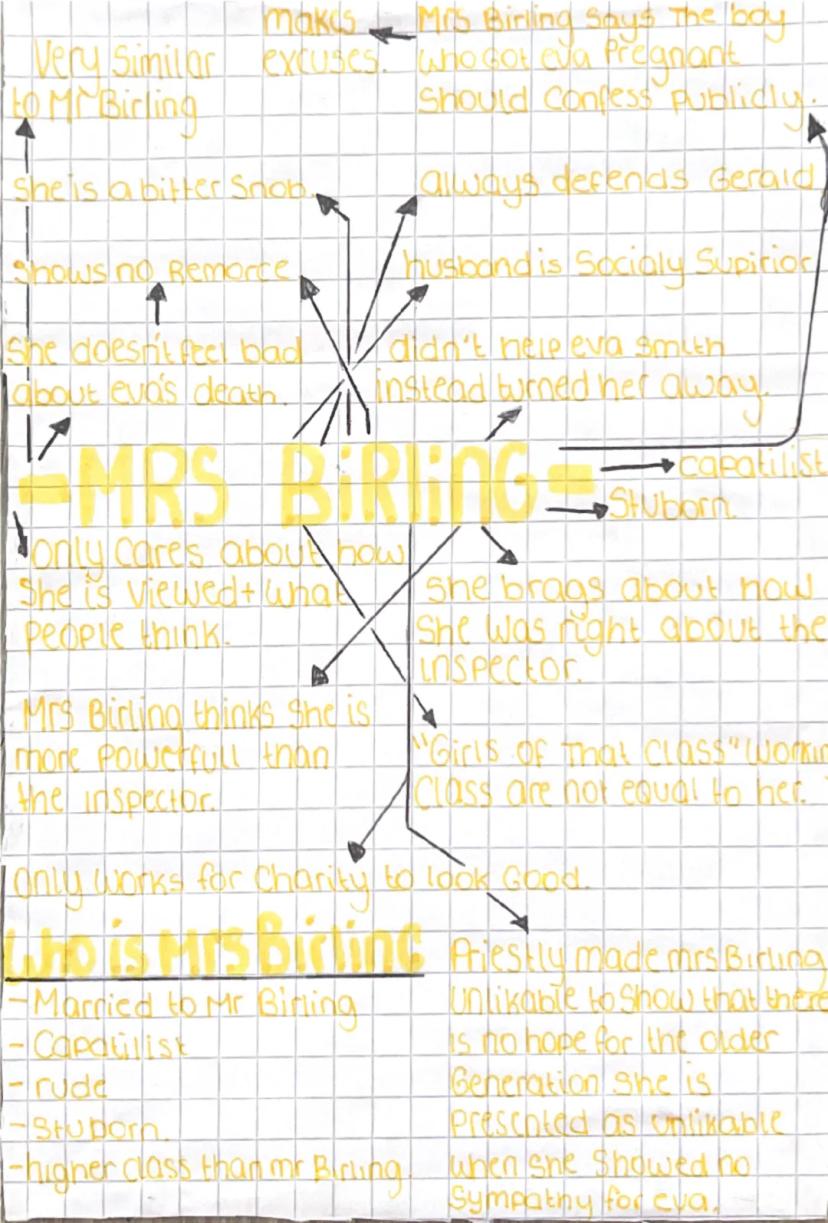 makes
excuses.
Mrs Birling says The boy
who Got eva Pregnant
Should Confess Publicly.
Very Similar
to Mr Birling
She is a bitter Snob.
always defends Gerald
Shows no Remorce
husband is Socialy Supirior
She doesn't feel bad
about eva's death.
didn't help eva smith
instead turned her away.
-MRS BiRling-
Capatilist
Stuborn.
Only Cares about how
She is viewed + what
People think.
She brags about how
She was right about the
inspector.
Mrs Birling thinks She is
more Powerfull than
the inspector.
"Girls of That Class" Workin
Class are not equal to her.
Only works for Charity to look Good.
Who is Mrs Birling
-Married to Mr Birling
-Capatilist
-rude
-Stuborn.
-higher class than mr Birling.
Priestly made mrs Birling
Unlikable to Show that there
is no hope for the older
Generation She is
Presented as unlikable
when She Showed no
Sympathy for eva.